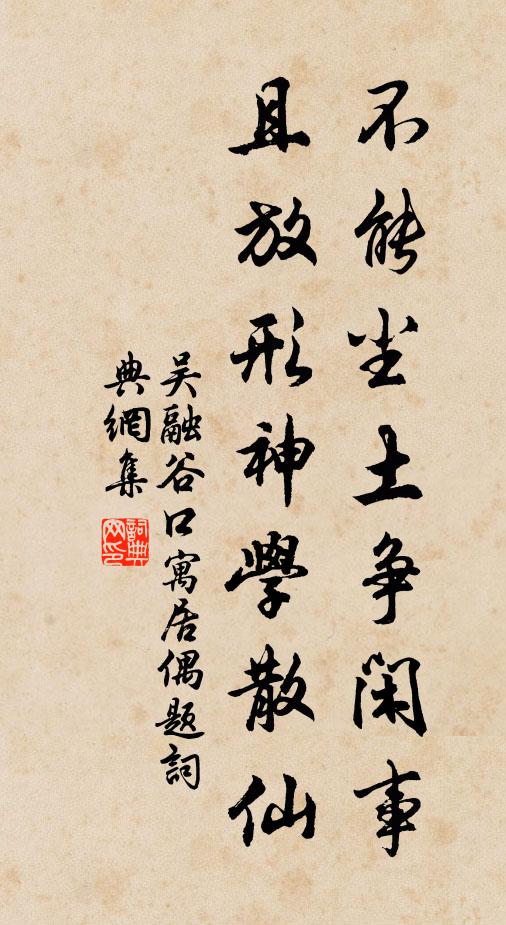 不能尘土争闲事
且放形神學散仙
吴融谷口寓居偶题詞
典網集
詞典
网印